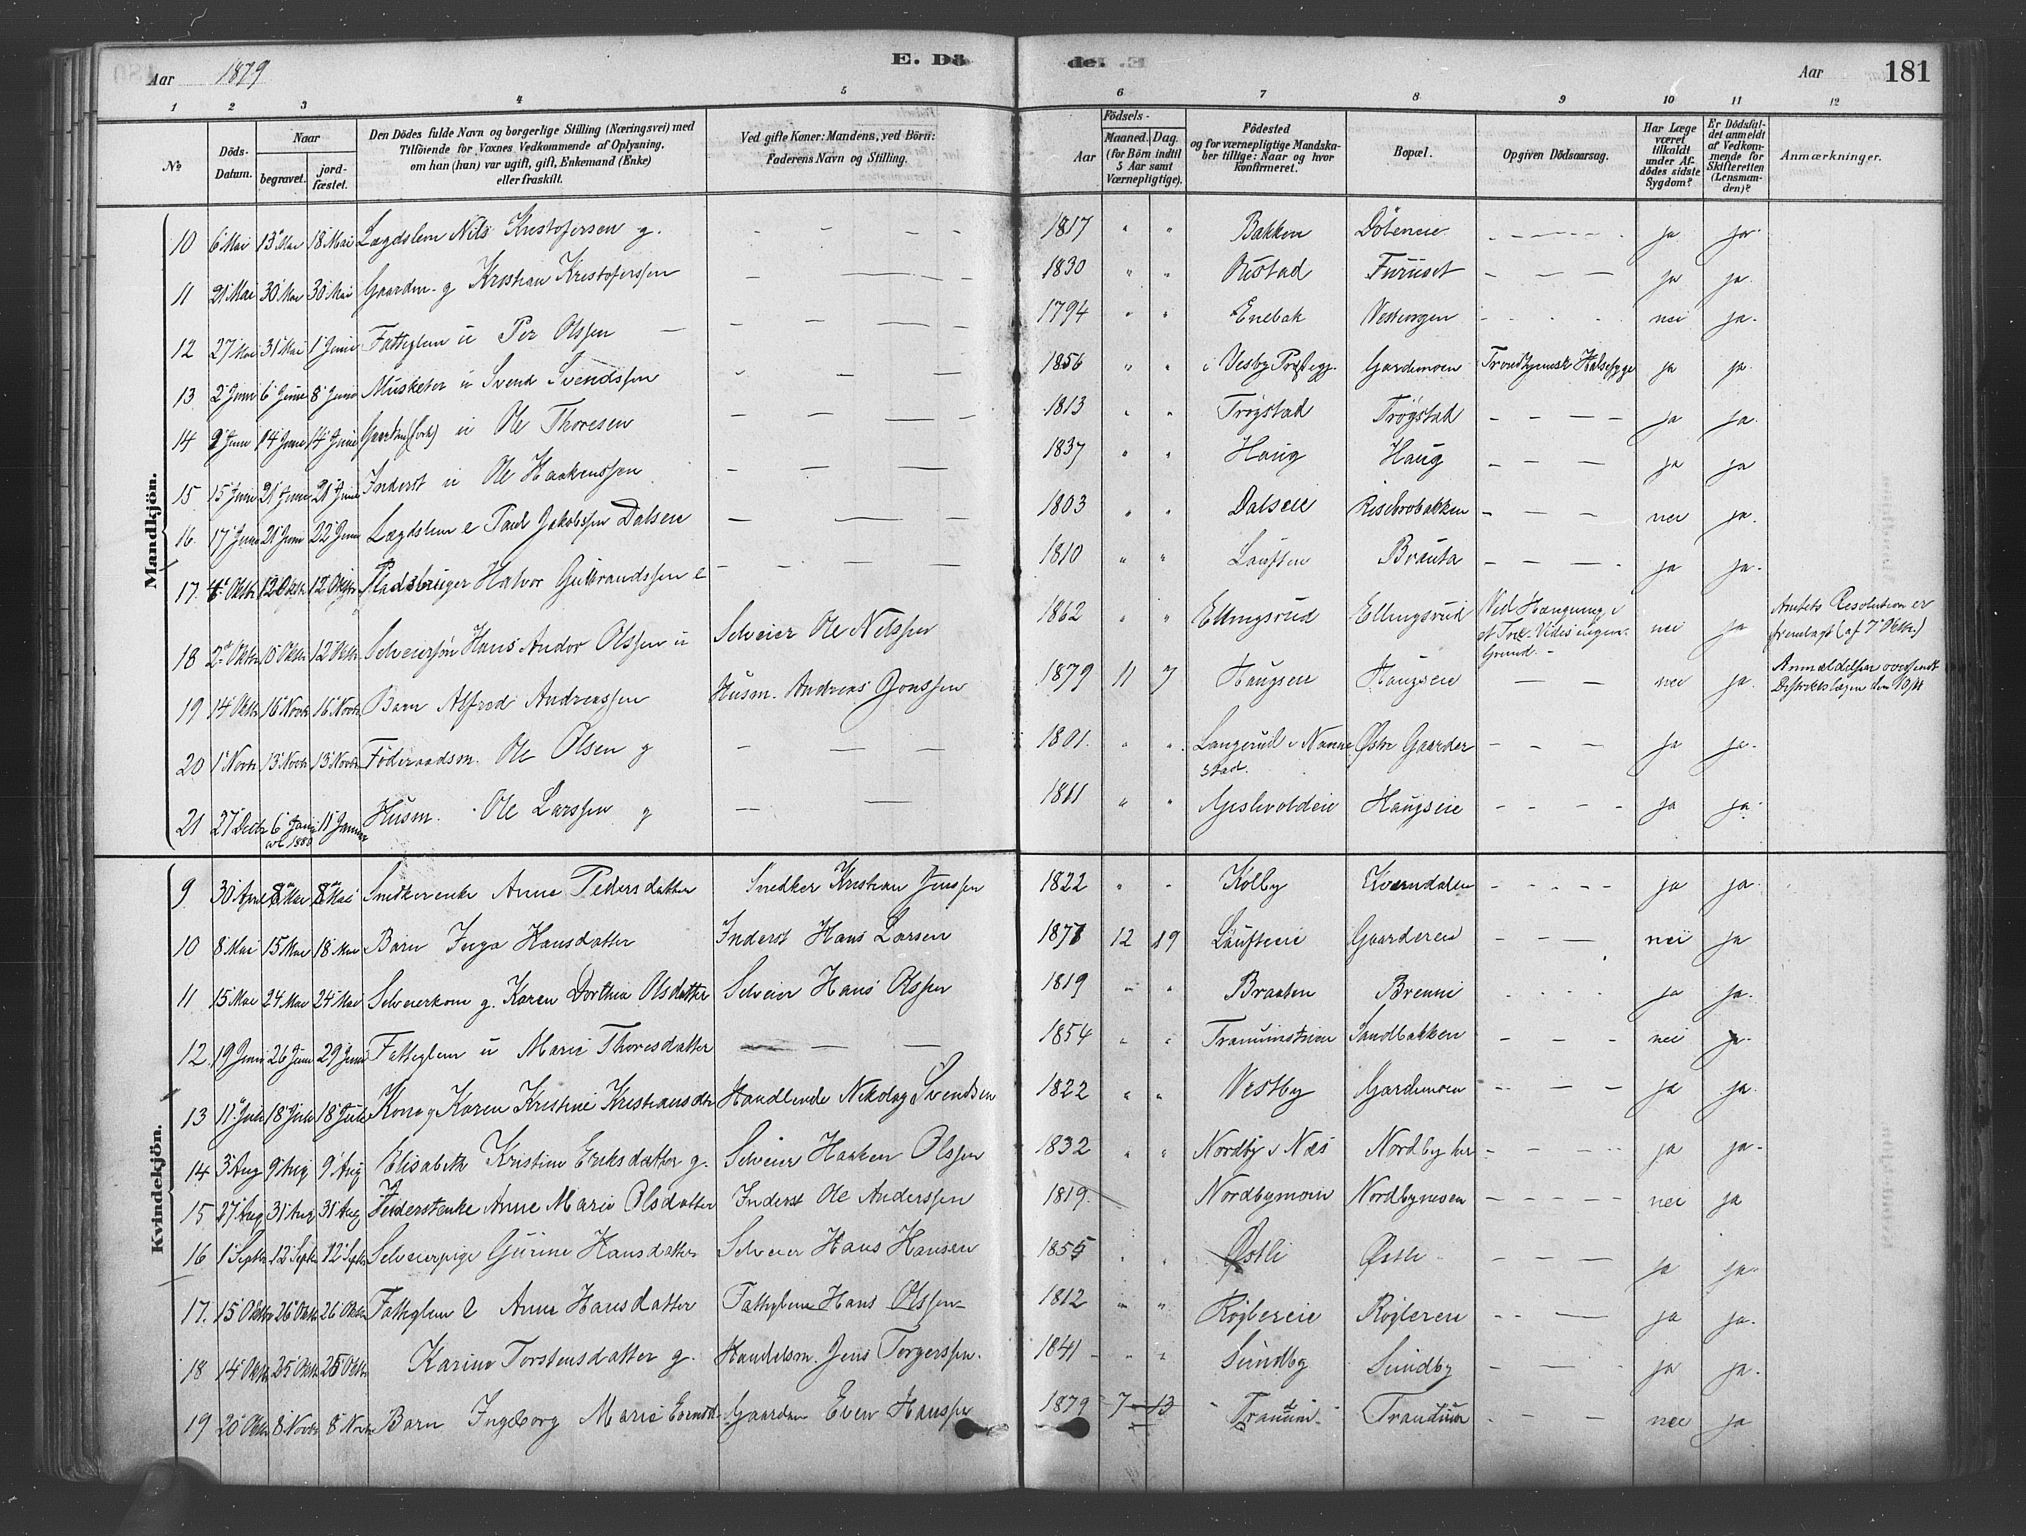 Aar 1879 E. Dö de. E. Aar 181
1 2 3 4 5 6 7 8 9 10 11 12
No Döds-Datum. Naar begravet. jord-fæstet. Den Dödes fulde Navn og borgerlige Stilling (Næringsvei) med Tilföiende for Voxnes Vedkommende af Oplysning, om han (hun) var ugift, gift, Enkemand (Enke) eller fraskilt. Ved gifte Koner: Mandens, ved Börn: Faderens Navn og Stilling. Födsels- Aar Maaned. Dag. (for Börn indtil 5 Aar samt Værnepligtige). Födested og for værnepligtige Mandskaber tillige: Naar og hvor konfirmeret. Bopæl. Opgiven Dödsaarsag. Har Læge været tilkaldt under Afdödes sidste Sygdom? Er Dödsfaldet anmeldt af Vedkommende for Skifteretten (Lensmanden)? Anmærkninger.
Mandkjön.
10 6 Mai 13 Mai 18 Mai Lægdslem Nils Kristofersen g. 1817 " " Bakken Döleneie ja ja
11 21 Mai 30 Mai 30 Mai Gaardm. g Kristian Kristoferssen 1830 " " Rustad Furuset ja ja.
12 27 Mai 31 Mai 1 Juni Fattiglem u Per Olssen 1794 " " Enebak nei ja.
13 2 Juni 6 Juni 8 Juni Musketer u Svend Svendssen 1856 " " i Vesby Præstegj. Gardemoen Trondhjemsk Halssyge ja ja.
14 9 Juni 14 Juni 14 Juni u Ole Thoresen 1813 " " Trögstad Trögstad ja ja.
15 15 Juni 21 Juni 21 Juni Inderst u Ole Haakenssen 1837 " " Haug Haug ja ja
16. 17 Juni 21 Juni 22 Juni Lægdslem e Paul Jakobssen Dalseie 1803 " " Dalseie Risebrobakken nei ja.
17. 4 Oktbr 12 Oktbr 12 Oktbr Pladsbruger Halvor Gulbrandssen e 1810 " " Lauften Brauta ja ja.
18 2 Oktbr 10 Oktbr 12 Oktbr Selveiersön Hans Andor Olssen u Selveier Ole Nilssen 1862 " " Ellingsrud Ellingsrud Ved Hængning i et Træ. Vides ingen Grund. nei ja Amtets Resolution er fremlagt (af 7 Oktbr.)
19 14 Oktbr 16 Novbr 16 Novbr Barn Alfred Andreassen Husm. Andreas Jonssen 1879 11 7 Haugseie Haugseie nei ja. Anmeldelsen oversendt Distriktslægen den 10/11
20 1 Novbr 13 Novbr 13 Novbr Föderaadsm. Ole Olsen g 1801. " " Langerud i Nannestad. Östre Gaarder ja ja.
21 27 Decbr 6 Januar 1880 11 Januar Husm. Ole Larssen g 1811 " " Gislevoldeie Haugseie ja ja.
Kvindekjön.
9 30 April 8 Mai 8 Mai Snedkerenke Anne Pedersdatter Snedker Kristian Jenssen 1822 " " Kolby Kverndalen ja ja.
10 8 Mai 15 Mai 18 Mai Barn Inga Hansdatter Inderst Hans Larsen 1878 12 19 Laufteie Gaarderen nei ja
11 15 Mai 24 Mai 24 Mai Selveierkone g. Karen Dorthea Olsdatter Selveier Hans Olssen 1819 " " Braaten Brenni ja ja.
12 19 Juni 26 Juni 29 Juni Fattiglem u Marie Thoresdatter 1854 " " Sandbakken nei ja.
13 11 Juli 18 Juli 18 Juli Kone g Karen Kristine Kristiansdtr Handlende Nikolay Svendsen 1822 " " Vestby Gardemoen ja ja.
14 3 Aug 9 Aug 9 Aug Elisabeth Kristine Eriksdatter g. Selveier Haaken Olssen 1832 " " Nordby i Næs Nordby her ja ja.
15 27 Aug 31 Aug 31 Aug Inderstenke Anne Marie Olsdatter Inderst Ole Anderssen 1819. Nordbymoen Nordbymoen nei ja
16 1 Septbr 12 Septbr 12 Septbr Selveierpige Gurine Hansdatter Selveier Hans Hansen 1855 " " Östli Östli ja ja.
17. 15 Oktbr 26 Oktbr 26 Oktbr Fattiglem e Anne Hansdatter Fattiglem Hans Olssen 1812 " " Röglereie Röglereie ja ja.
18 14 Oktbr 25 Oktbr 25 Oktbr Karine Torstensdatter g. Handelsm. Jens Torgerssen. 1841 " " Sundby Sundby ja ja.
19 20 Oktbr 8 Novbr 8 Novbr Barn Ingeborg Marie Evensd Gaardm Even Hanssen 1879 7 13 Trandum Trandum nei ja